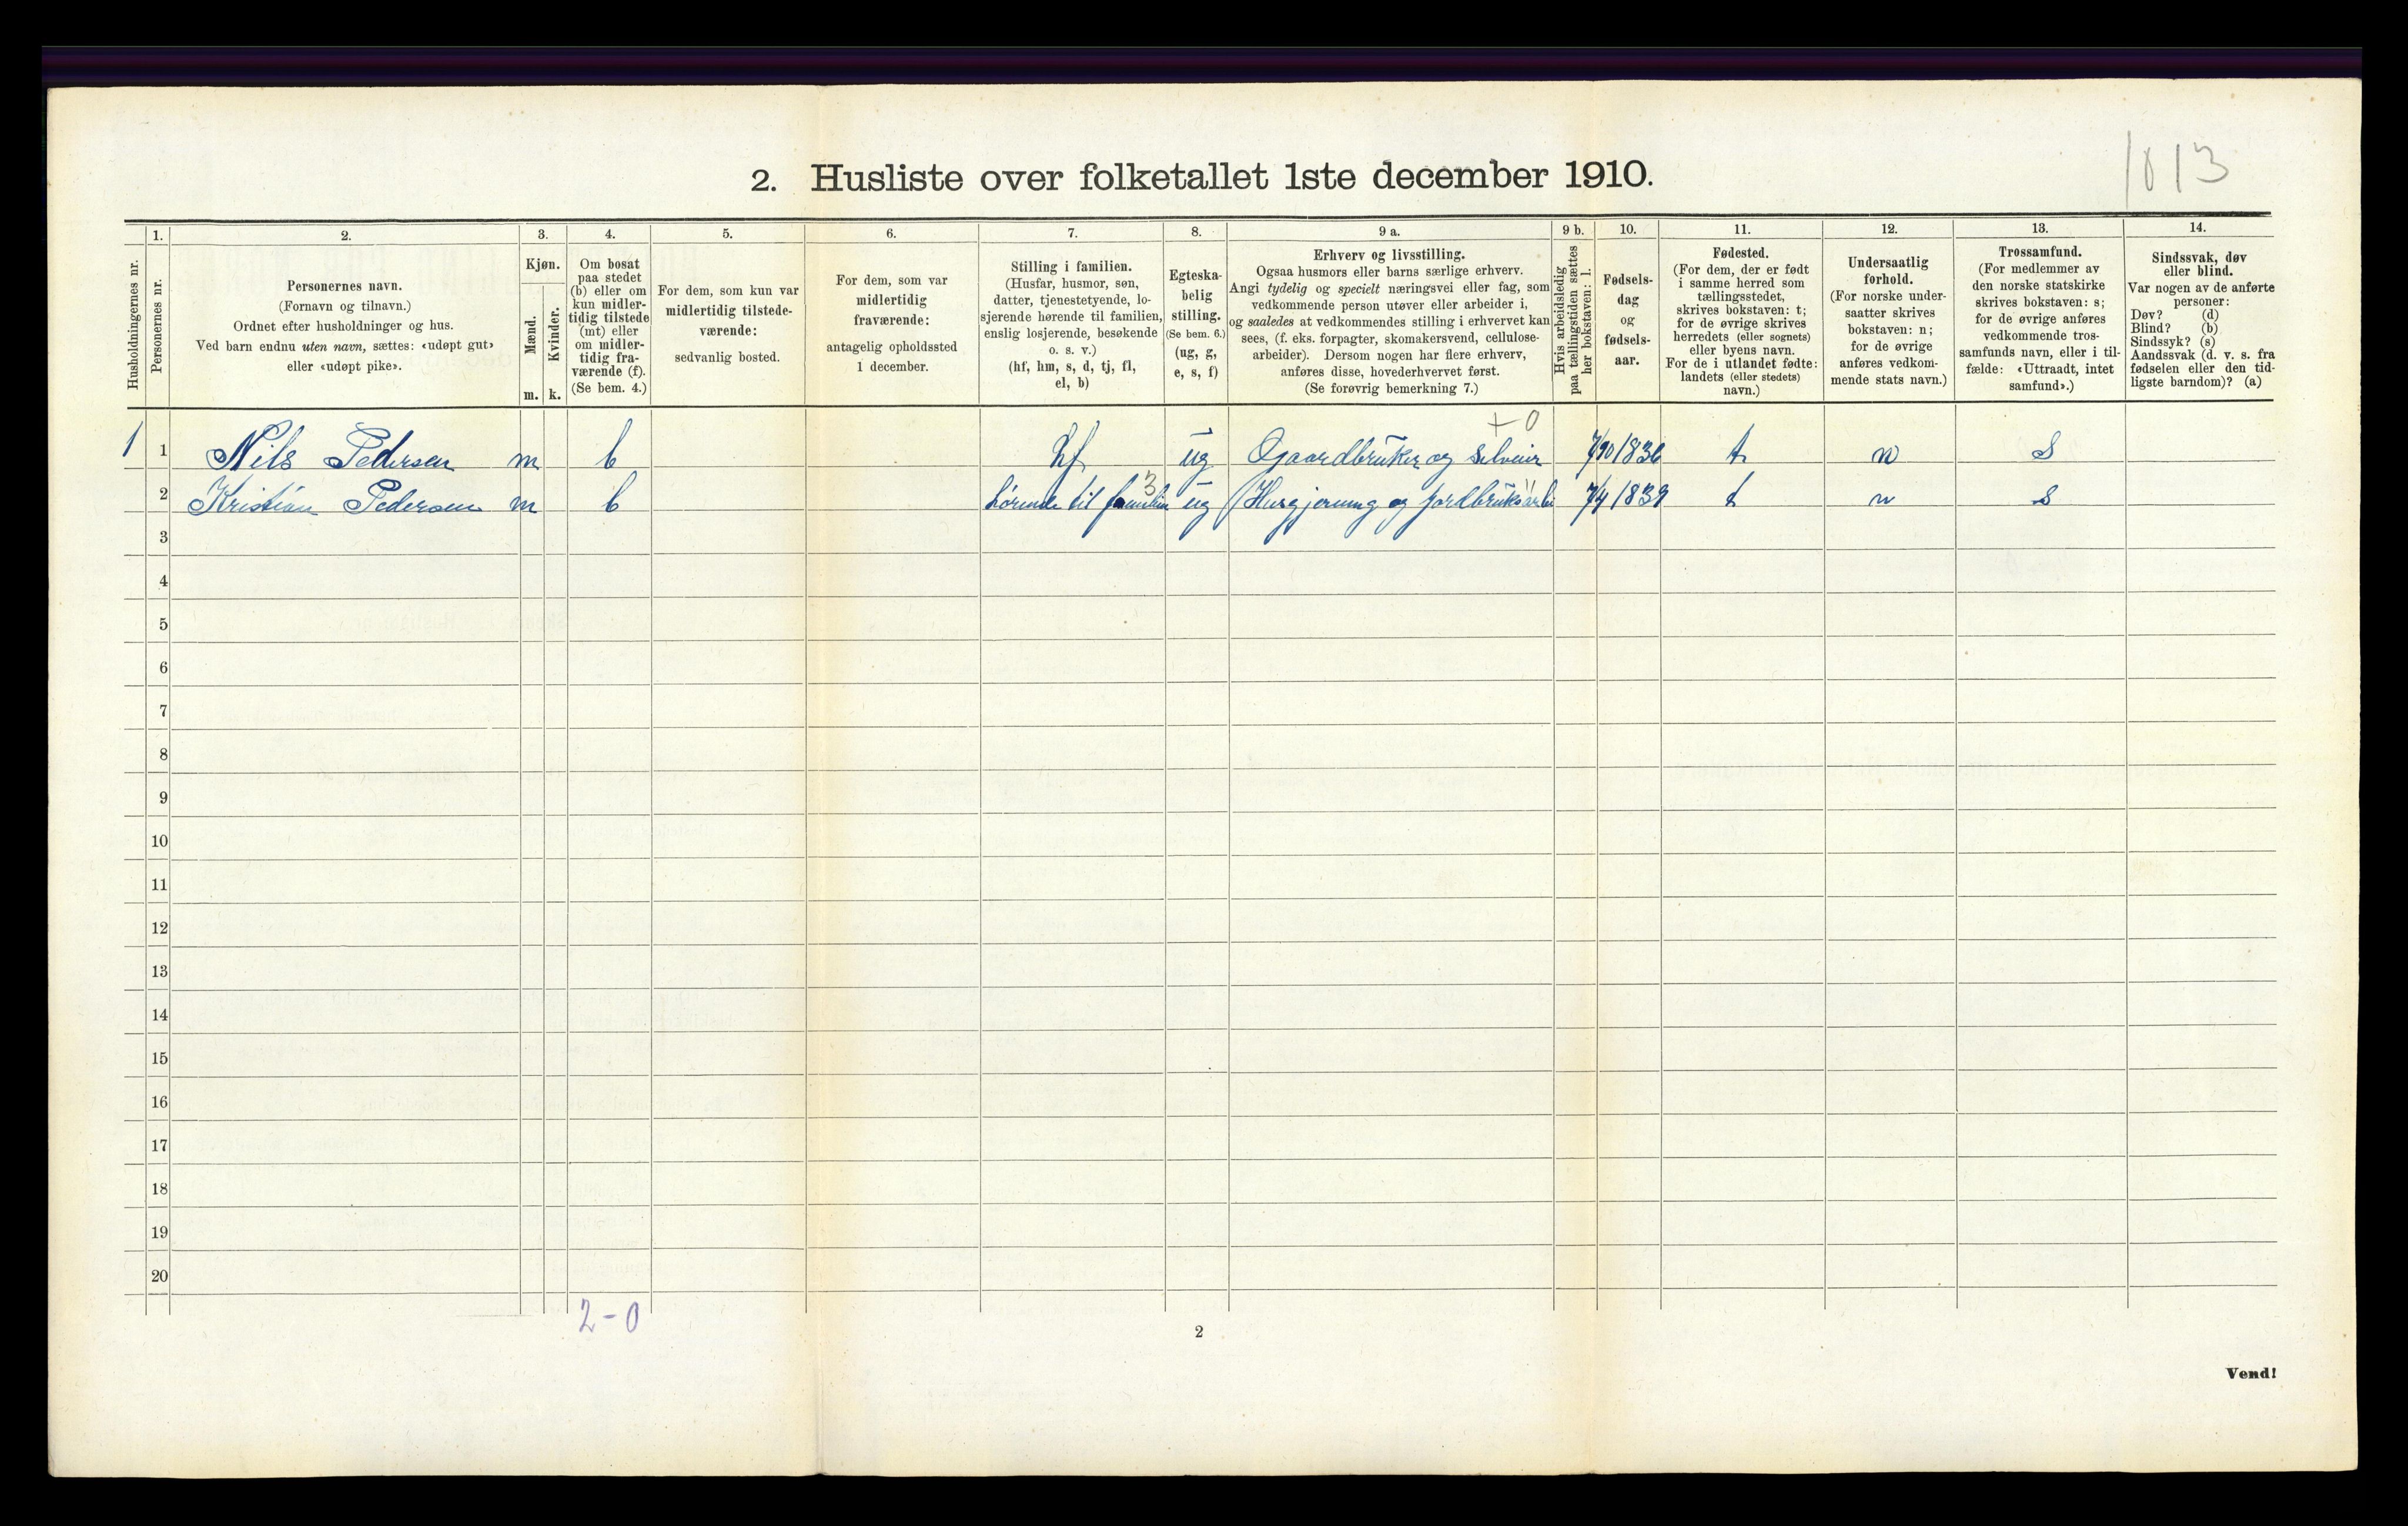 1013
2. Husliste over folketallet 1ste december 1910.
Husholdningernes nr.
1.
Personernes nr.
2.
Personernes navn.
(Fornavn og tilnavn.)
Ordnet efter husholdninger og hus.
Ved barn endnu uten navn, sættes: «udøpt gut»
eller «udøpt pike».
3.
Kjøn.
Mænd.
Kvinder.
m. k.
4.
Om bosat
paa stedet
(b) eller om
kun midler-
tidig tilstede
(mt) eller
om midler-
tidig fra-
værende (f).
(Se bem. 4.)
5.
For dem, som kun var
midlertidig tilstede-
værende:
sedvanlig bosted.
6.
For dem, som var
midlertidig
fraværende:
antagelig opholdssted
1 december.
7.
Stilling i familien.
(Husfar, husmor, søn,
datter, tjenestetyende, lo-
sjerende hørende til familien,
enslig losjerende, besøkende
o. s. v.)
(hf, hm, s, d, tj, fl,
el, b)
8.
Egteska-
belig
stilling.
(Se bem. 6.)
(ug, g,
e, s, f)
9 a.
Erhverv og livsstilling.
Ogsaa husmors eller barns særlige erhverv.
Angi tydelig og specielt næringsvei eller fag, som
vedkommende person utøver eller arbeider i,
og saaledes at vedkommendes stilling i erhvervet kan
sees, (f. eks. forpagter, skomakersvend, cellulose-
arbeider). Dersom nogen har flere erhverv,
anføres disse, hovederhvervet først.
(Se forøvrig bemerkning 7.)
9 b.
Hvis arbeidsledig
paa tællingstiden sættes
her bokstaven: l.
10.
Fødsels-
dag
og
fødsels-
aar.
11.
Fødested.
(For dem, der er født
i samme herred som
tællingsstedet,
skrives bokstaven: t;
for de øvrige skrives
herredets (eller sognets)
eller byens navn.
For de i utlandet fødte:
landets (eller stedets)
navn.)
12.
Undersaatlig
forhold.
(For norske under-
saatter skrives
bokstaven: n;
for de øvrige
anføres vedkom-
mende stats navn.)
13.
Trossamfund.
(For medlemmer av
den norske statskirke
skrives bokstaven: s;
for de øvrige anføres
vedkommende tros-
samfunds navn, eller i til-
fælde: «Uttraadt, intet
samfund».)
14.
Sindssvak, døv
eller blind.
Var nogen av de anførte
personer:
Døv? (d)
Blind? (b)
Sindssyk? (s)
Aandssvak (d. v. s. fra
fødselen eller den tid-
ligste barndom)? (a)
+ 0
1 1 Nils Pedersen m b hf ug Gaardbruker og selveier 1836 t n s
3
2 Kristian Pedersen m b hörende til familien ug Husgjerning og jordbruksarbei 7/4 1839 t n s
3
4
5
6
7
8
9
10
11
12
13
14
15
16
17
18
19
20
2-0
2
Vend!